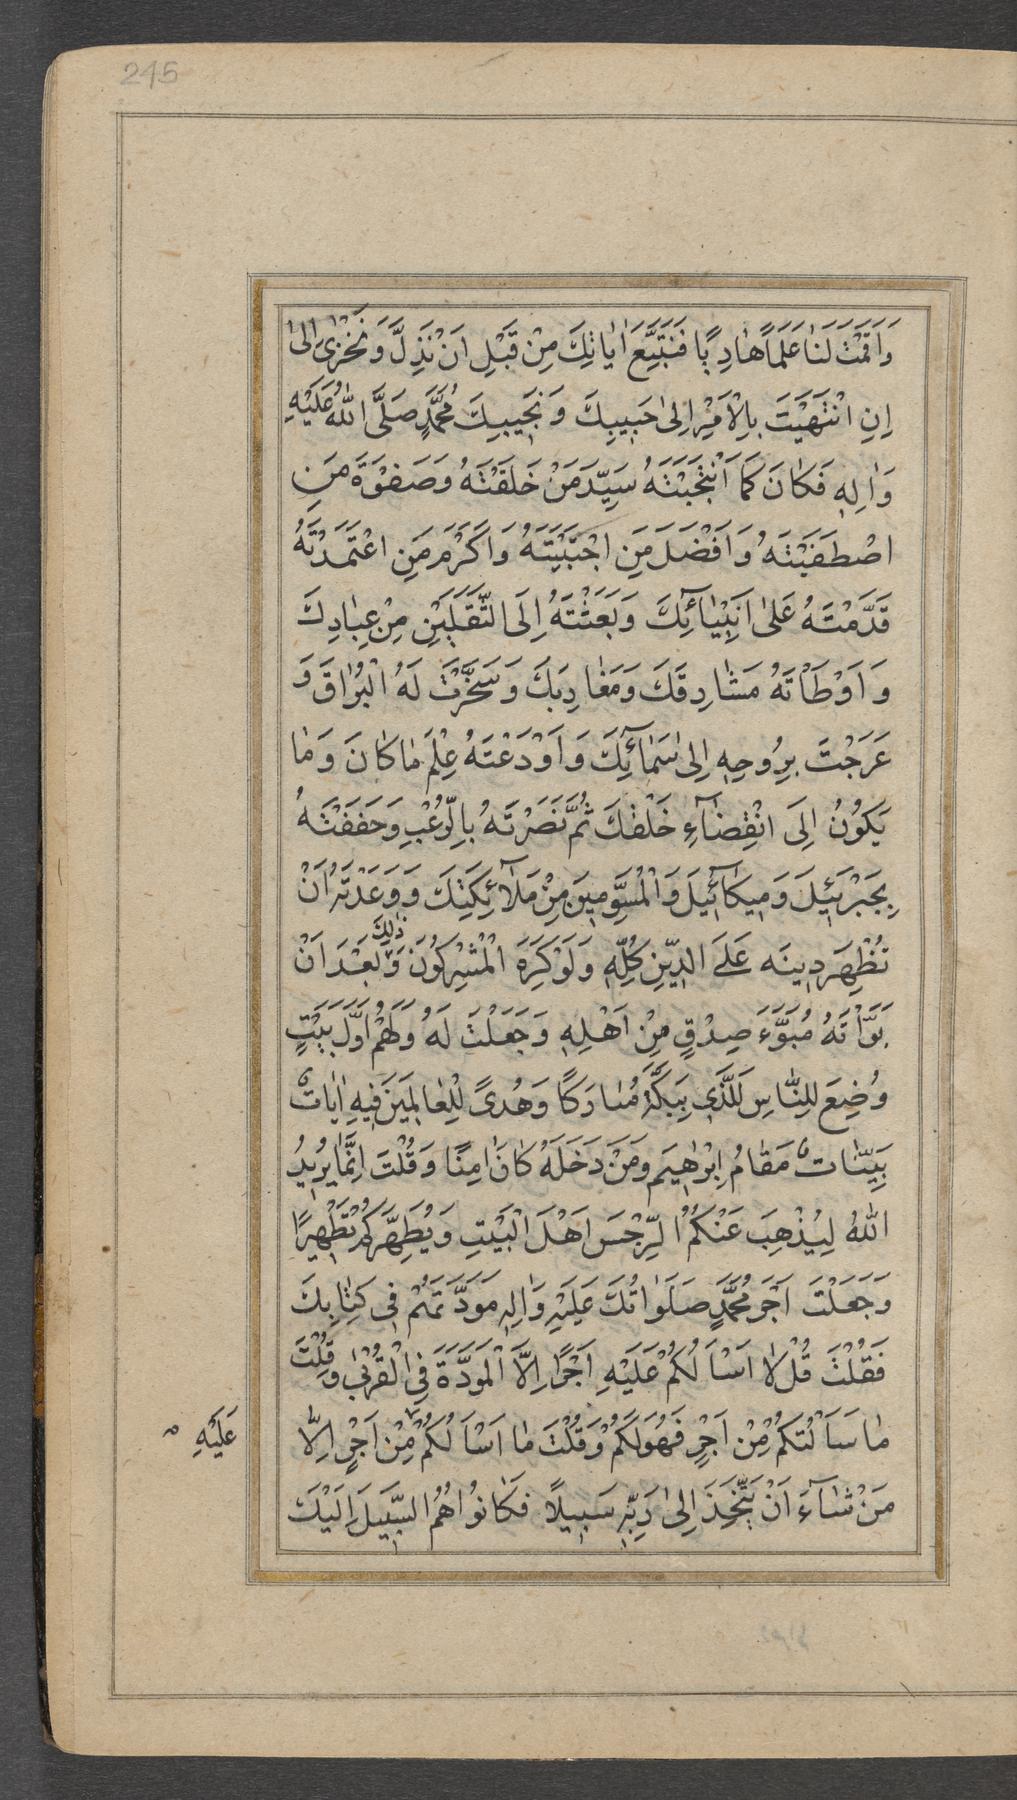 245
وَاَقَمْتَ لَنٰا عَلَمًا هٰادِيًا فَنَتَّبِعَ اٰيٰاتِكَ مِنْ قَبْلِ اَنْ نَذِلَّ وَنَخْزٰى اِلىٰ
اِنِ انْتَهَيْتَ بِالْاَمْرِ اِلىٰ حَبِيبِكَ وَنَجِيبِكَ مُحَمَّدٍ صَلَّى اللّٰهُ عَلَيْهِ
وَاٰلِهِ فَكٰانَ كَمَا انْتَجَبْتَهُ سَيِّدَ مَنْ خَلَقْتَهُ وَصَفْوَةَ مَنِ
اصْطَفَيْتَهُ وَاَفْضَلَ مَنِ اجْتَبَيْتَهُ وَاَكْرَمَ مَنِ اعْتَمَدْتَهُ
قَدَّمْتَهُ عَلىٰ اَنْبِيٰآئِكَ وَبَعَثْتَهُ اِلَى الثَّقَلَيْنِ مِنْ عِبٰادِكَ
وَاَوْطَاْتَهُ مَشٰارِقَكَ وَمَغٰارِبَكَ وَسَخَّرْتَ لَهُ الْبُرٰاقَ وَ
عَرَجْتَ بِرُوحِهِ اِلىٰ سَمٰآئِكَ وَاَوْدَعْتَهُ عِلْمَ مٰا كٰانَ وَمٰا
يَكُونُ اِلَى انْقِضٰآءِ خَلْقِكَ ثُمَّ نَصَرْتَهُ بِالرُّعْبِ وَحَفَفْتَهُ
بِجَبْرَئِيلَ وَمِيكٰآئِيلَ وَالْمُسَوِّمِينَ مِنْ مَلٰآئِكَتِكَ وَوَعَدْتَهُ اَنْ
تُظْهِرَ دِينَه عَلَى الدِّينِ كُلِّهِ وَلَوْ كَرِهَ الْمُشْرِكُونَ وَ ذٰلِكَ بَعْدَ اَنْ
بَوَّاْتَهُ مُبَوَّءَ صِدْقٍ مِنْ اَهْلِهِ وَجَعَلْتَ لَهُ وَلَهُمْ اَوَّلَ بَيْتٍ
وُضِعَ لِلنّٰاسِ لَلَّذِي بِبَكَّةَ مُبٰارَكًا وَهُدىً لِلْعٰالَمِينَ فِيهِ اٰيٰاتٌ
بَيِّنٰاتٌ مَقٰامُ اِبْرٰهِيمَ وَمَنْ دَخَلَهُ كٰانَ اٰمِنًا وَقُلْتَ اِنَّمٰا يُرِيدُ
اللّٰهُ لِيُذْهِبَ عَنْكُمُ الرِّجْسَ اَهْلَ الْبَيْتِ وَيُطَهِّرَكُمْ تَطْهِيرًا
وَجَعَلْتَ اَجْرَ مُحَمَّدٍ صَلَوٰاتُكَ عَلَيْهِ وَاٰلِهِ مَوَدَّتَهُمْ فِي كِتٰابِكَ
فَقُلْتَ قُلْ لٰا اَسْاَلُكُمْ عَلَيْهِ اَجْرًا اِلَّا الْمَوَدَّةَ فِي الْقُرْبىٰ وَقُلْتَ
مٰا سَاَلْتُكُمْ مِنْ اَجْرٍ فَهُوَ لَكُمْ وَقُلْتَ مٰا اَسْاَلُكُمْ مِنْ اَجْرٍ اِلّٰا
عَلَيْهِ
مَنْ شٰآءَ اَنْ يَتَّخِذَ اِلىٰ رَبِّهِ سَبِيلًا فَكٰانُوا هُمُ السَّبِيلَ اِلَيْكَ